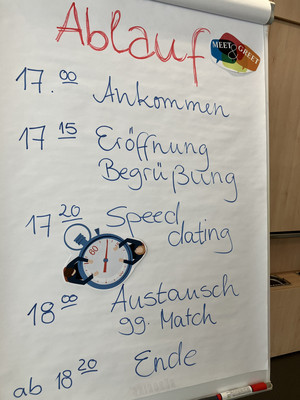 Ablauf
MEET & GREET
17.00 Ankommen
17 15 Eröffnung
Begrüßung
17 20 Speed
dating
60
18 00 Austausch
gg. Match
ab 18 20 Ende